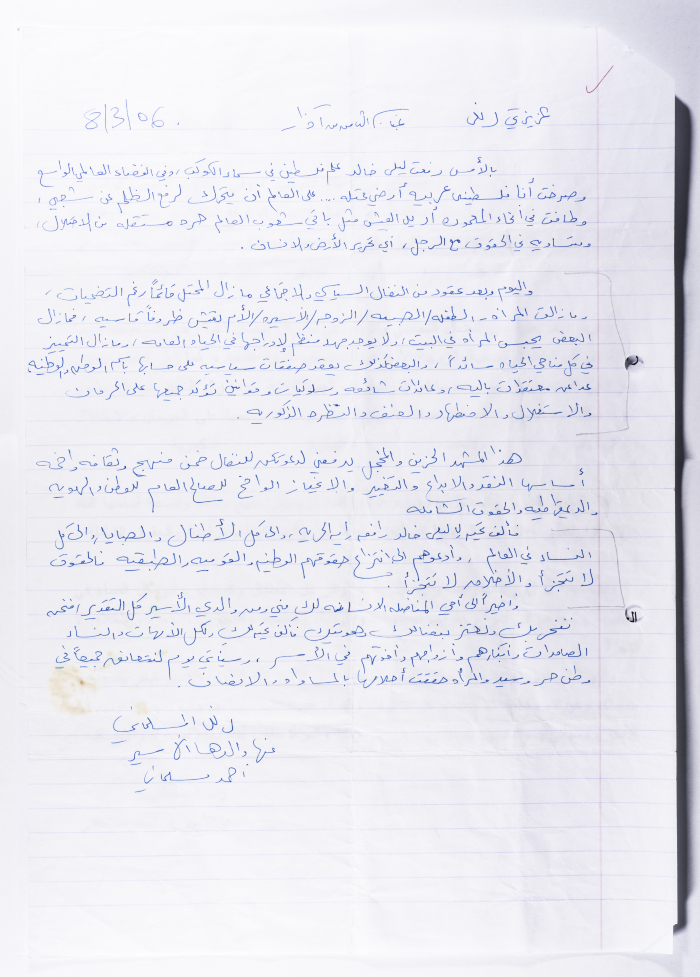 عزيزتي رنلى بمناسبة الثامن من آذار 8/3/06.
بالأمس رفعت ليلى خالد علم فلسطين في سماء الكوكب، وفي الفضاء العالمي الواسع
وصرخت أنا فلسطينية عربية أرضي محتلة .... على العالم أن يتحرك لرفع الظلم عن شعبي،
وطافت في أنحاء المعموره أريد العيش مثل باقي شعوب العالم حره مستقله من الاحتلال،
ومتساويه في الحقوق مع الرجل، أي تحرير الأرض والانسان.
واليوم وبعد عقود من النضال السياسي والاجتماعي ما زال المحتل قائماً رغم التضحيات،
وما زالت المرأة، الطفله/الصبيه/الزوجه/الأسيره/الأم تعيش ظروفاً قاسيه، فما زال
البعض يحبس المرأه في البيت، ولا يوجد جهد منظم لإدراجها في الحياه العامه، وما زال التمييز
في كل مناحي الحياه سائداً، والبعض كذلك يعقد صفقات سياسيه على حسابها باسم الوطن والوطنيه
عدا عن معتقدات باليه، وعادات شائعه وسلوكيات وقوانين تؤكد جميعها على الحرمان
والاستغلال والاضطهاد والعنف والنظره الذكوريه.
هذا المشهد الحزين والمخجل يدفعني لدعوتكن للنضال ضمن منهج وثقافه واضحه
أساسها النقد والابداع والتغيير والانحياز الواضح للصالح العام للوطن والهويه
والديمقراطيه والحقوق الشامله
فألف تحيه لليلى خالد رافعه رايه الحريه، والى كل الأطفال والصبايا، والى كل
النساء في العالم، وأدعوهم الى انتزاع حقوقهم الوطنيه والقوميه والطبقيه فالحقوق
لا تتجزأ والأخلاق لا تتجزأ
وأخيراً الى أمي المناضله الانسانه لك مني ومن والدي الأسير كل التقدير، فنحن
نفخر بك ونعتز بنضالك وهويتك فألف تحيه لك، ولكل الأمهات والنساء
الصامدات وأبنائهم وأزواجهم وأخوتهم في الأسر، وسيأتي يوم لنتعانق جميعاً في
وطن حر وسيد والمرأه حققت أحلامها بالمساواه والانصاف.
المسلماني
عنها والدها الأسير
أحمد مسلماني